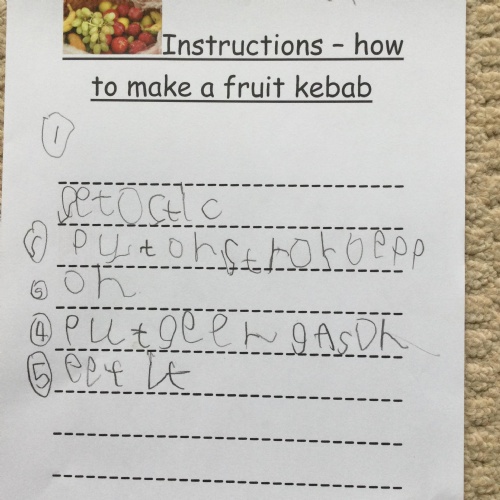 Instructions – how
to make a fruit kebab
1
get O Stic
2 put on stroroepp
3 on
4 put geen gAs On
5 eet it